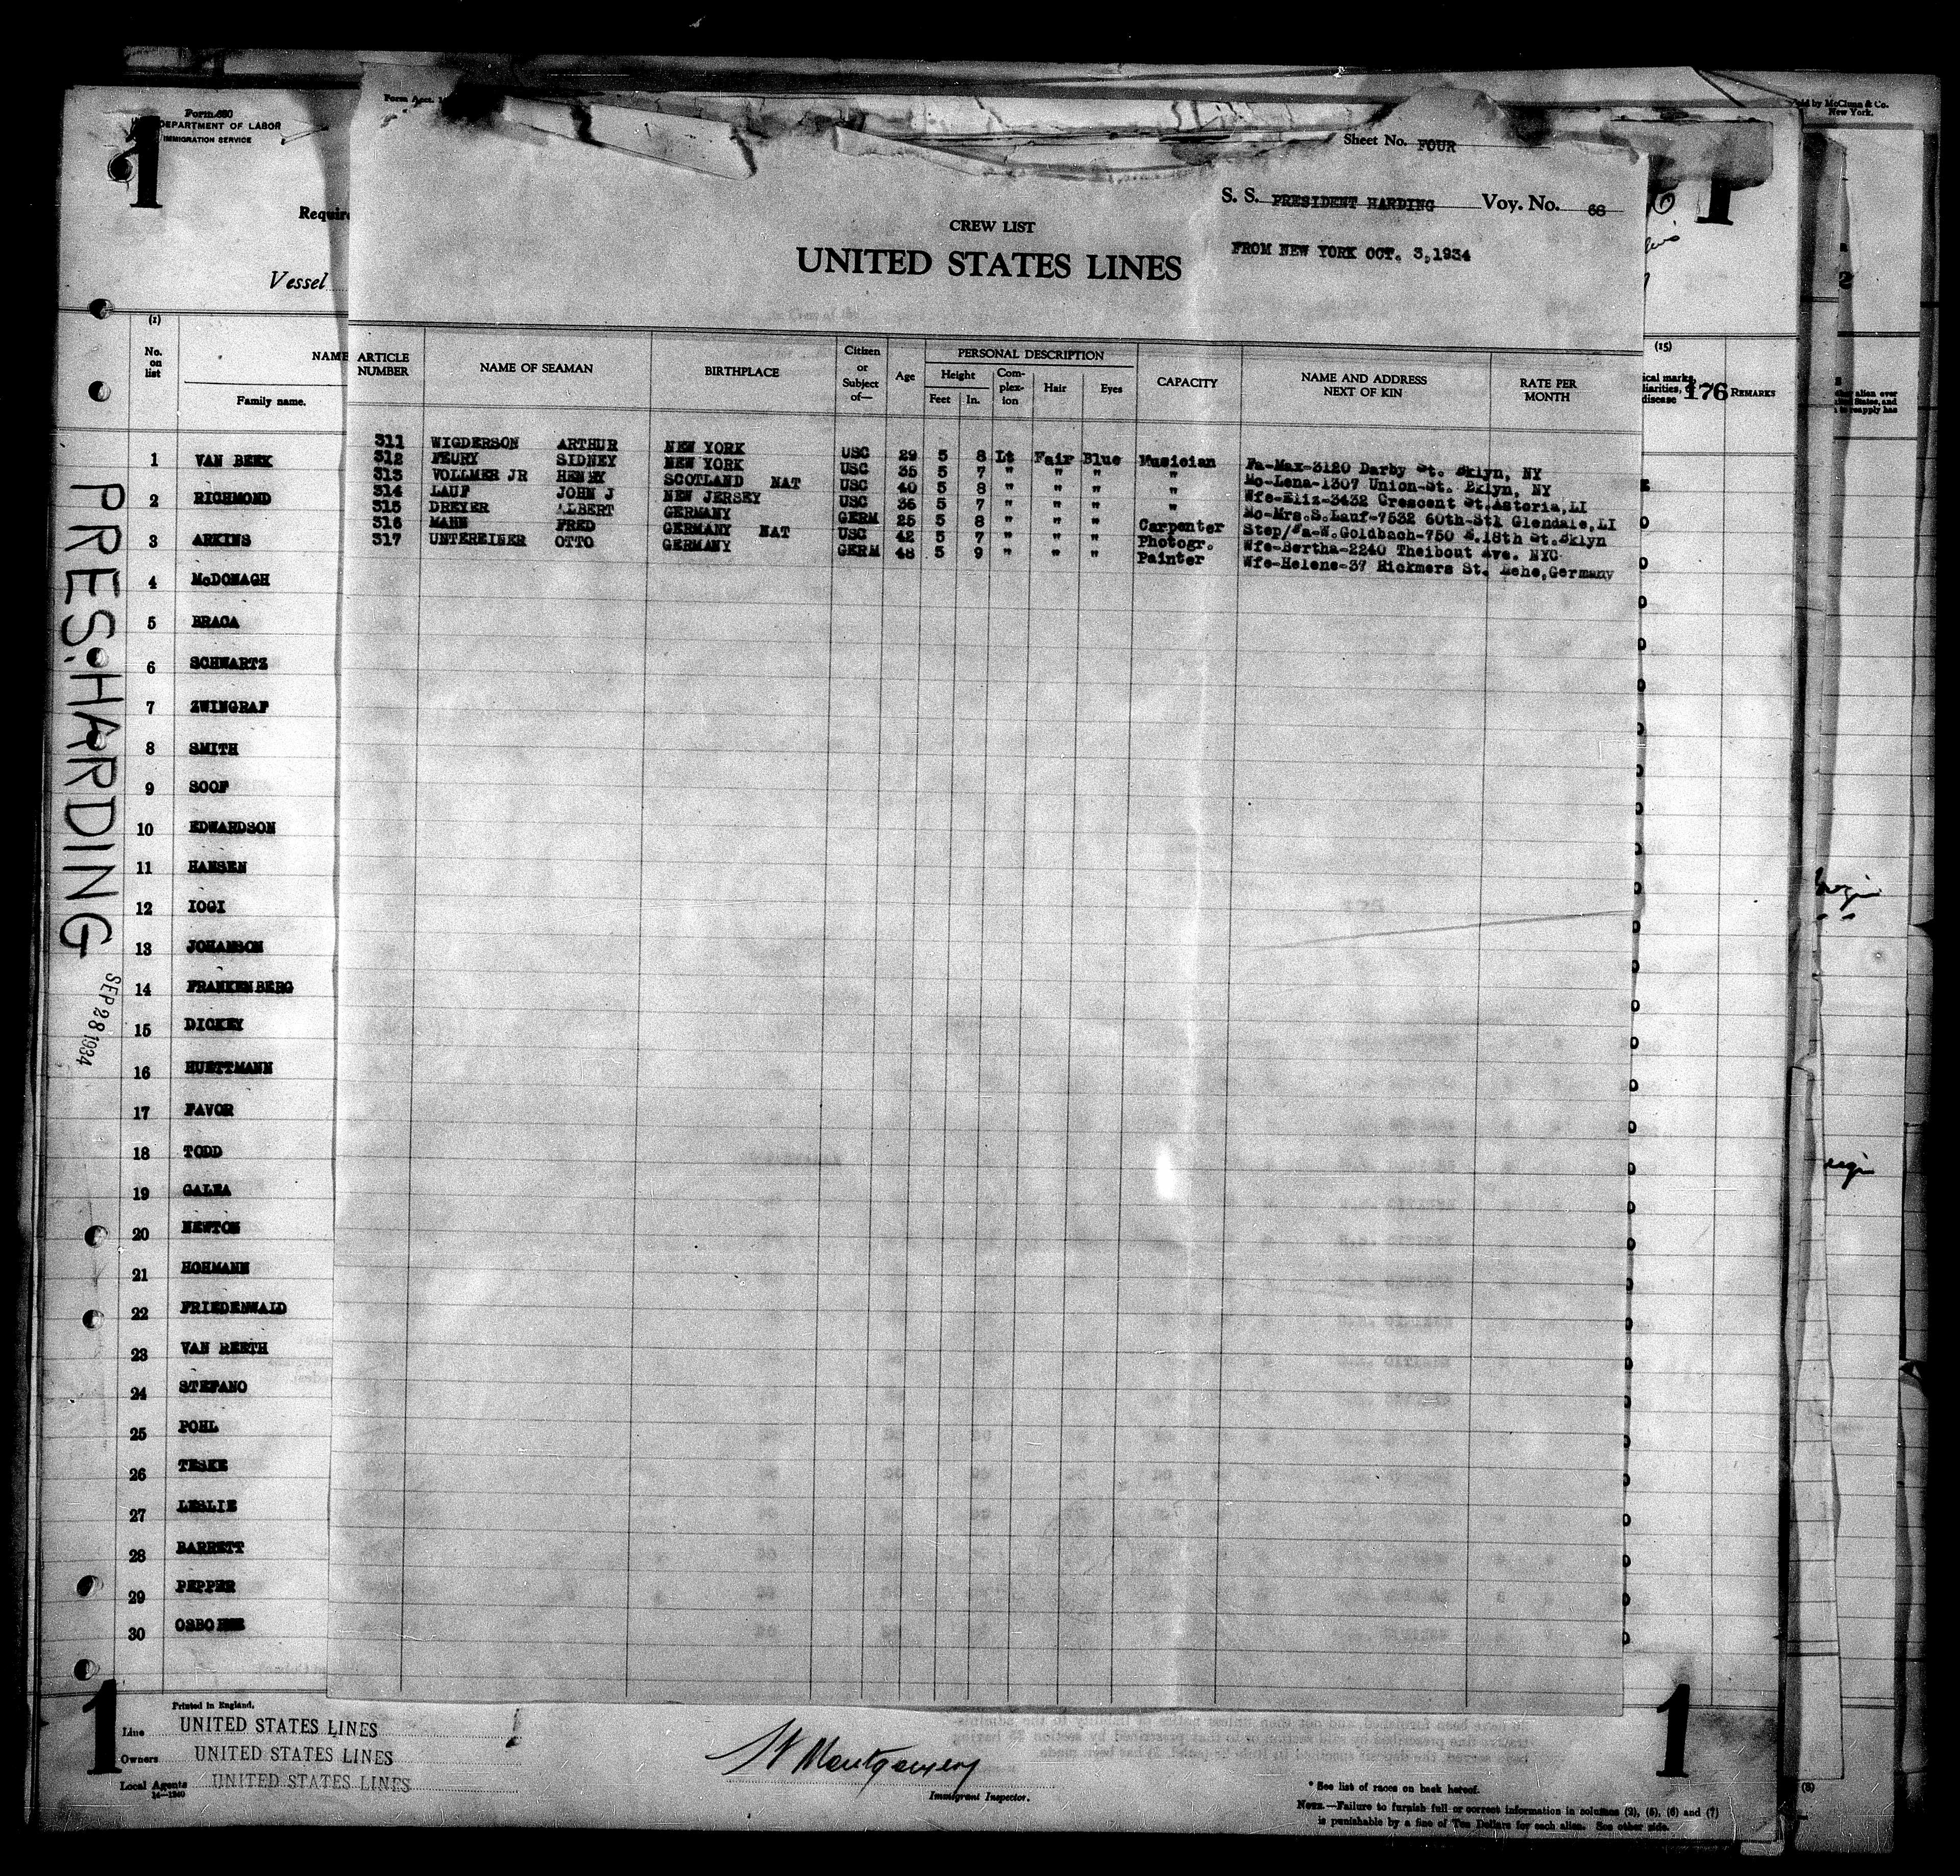 Form 680
DEPARTMENT OF LABOR
IMMIGRATION SERVICE
1
1
Sheet No. FOUR
S. S. PRESIDENT HARDING Voy. No. 66
FROM NEW YORK OCT. 3,1934
CREW LIST
UNITED STATES LINES
Vessel
ARTICLE NUMBER NAME OF SEAMAN BIRTHPLACE Citizen or Subject of— Age PERSONAL DESCRIPTION Height Feet In. Complexion Hair Eyes CAPACITY NAME AND ADDRESS NEXT OF KIN RATE PER MONTH
311 WIGDERSON ARTHUR NEW YORK USC 29 5 8 Lt Fair Blue Musician Fa-Max-3120 Darby St. Bklyn, NY
312 FEURY SIDNEY NEW YORK USC 35 5 7 " " " " Mo-Lena-1307 Union-St. Bklyn, NY
313 VOLLMER JR HENRY SCOTLAND NAT USC 40 5 8 " " " " Wfe-Eliz-3432 Crescent St.Astoria,LI
314 LAUF JOHN J NEW JERSEY USC 36 5 7 " " " " Mo-Mrs.S.Lauf-7532 60th-St1 Glendale,LI
315 DREYER ALBERT GERMANY GERM 25 5 8 " " " Carpenter Step/Fa-W.Goldbach-750 E.18th St.Bklyn
316 MAHN FRED GERMANY NAT USC 42 5 7 " " " Photogr. Wfe-Bertha-2240 Theibout Ave. NYC
317 UNTEREINER OTTO GERMANY GERM 48 5 9 " " " Painter Wfe-Helene-37 Rickmers St. Lehe,Germany
(1)
No. on list
NAME
Family name.
1 VAN BEEK
2 RICHMOND
3 ARKINS
4 McDONAGH
5 BRAGA
6 SCHWARTZ
7 ZWINGRAF
8 SMITH
9 SOOF
10 EDWARDSON
11 HANSEN
12 IOGI
13 JOHANSON
14 FRANKENBERG
15 DICKEY
16 HUETTMANN
17 FAVOR
18 TODD
19 GALEA
20 NEWTON
21 HOHMANN
22 FRIEDENWALD
23 VAN REETH
24 STEFANO
25 POHL
26 TESKE
27 LESLIE
28 BARRETT
29 PEPPER
30 OSBORNE
PRES. HARDING
SEP 28 1934
(15)
176 REMARKS
1
Printed in England.
Line UNITED STATES LINES
Owners UNITED STATES LINES
Local Agents UNITED STATES LINES
14—1240
Montgomery
Immigrant Inspector.
1
* See list of races on back hereof.
NOTE.—Failure to furnish full or correct information in columns (2), (5), (6) and (7)
is punishable by a fine of Ten Dollars for each alien. See other side.